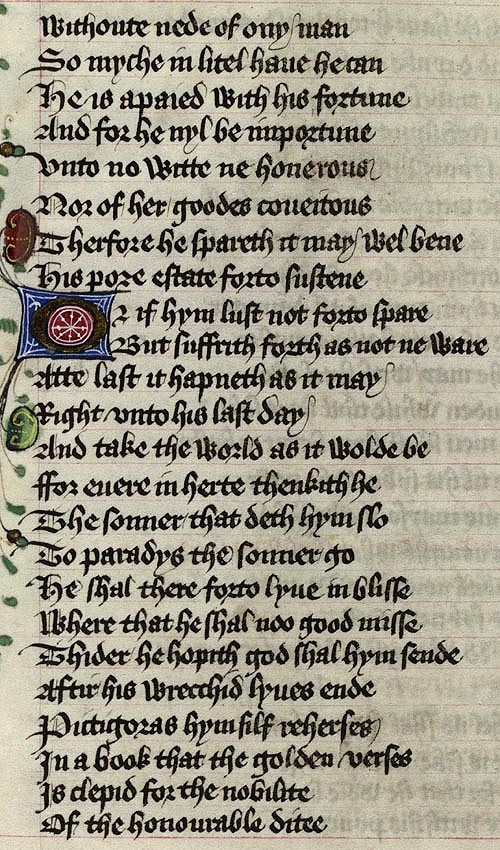 Withoute nede of ony man
So myche in litel haue he can
He is apaied with his fortune
And for he nyl be importune
Vnto no witte ne honerous
Nor of her goodes coueitous
Therfore he spareth it may wel bene
His pore estate forto sustene
Or if hym lust not forto spare
But suffrith forth as not ne ware
Atte last it hapneth as it may
Right vnto his last day
And take the world as it wolde be
ffor euere in herte thenkith he
The sonner that deth hym slo
To paradys the sonner go
He shal there forto lyue in blisse
Where that he shal noo good misse
Thider he hopith god shal hym sende
Aftir his wrecchid lyues ende
Pictigoras hymsilf reherses
In a book that the golden verses
Is clepid for the nobilite
Of the honourable ditee